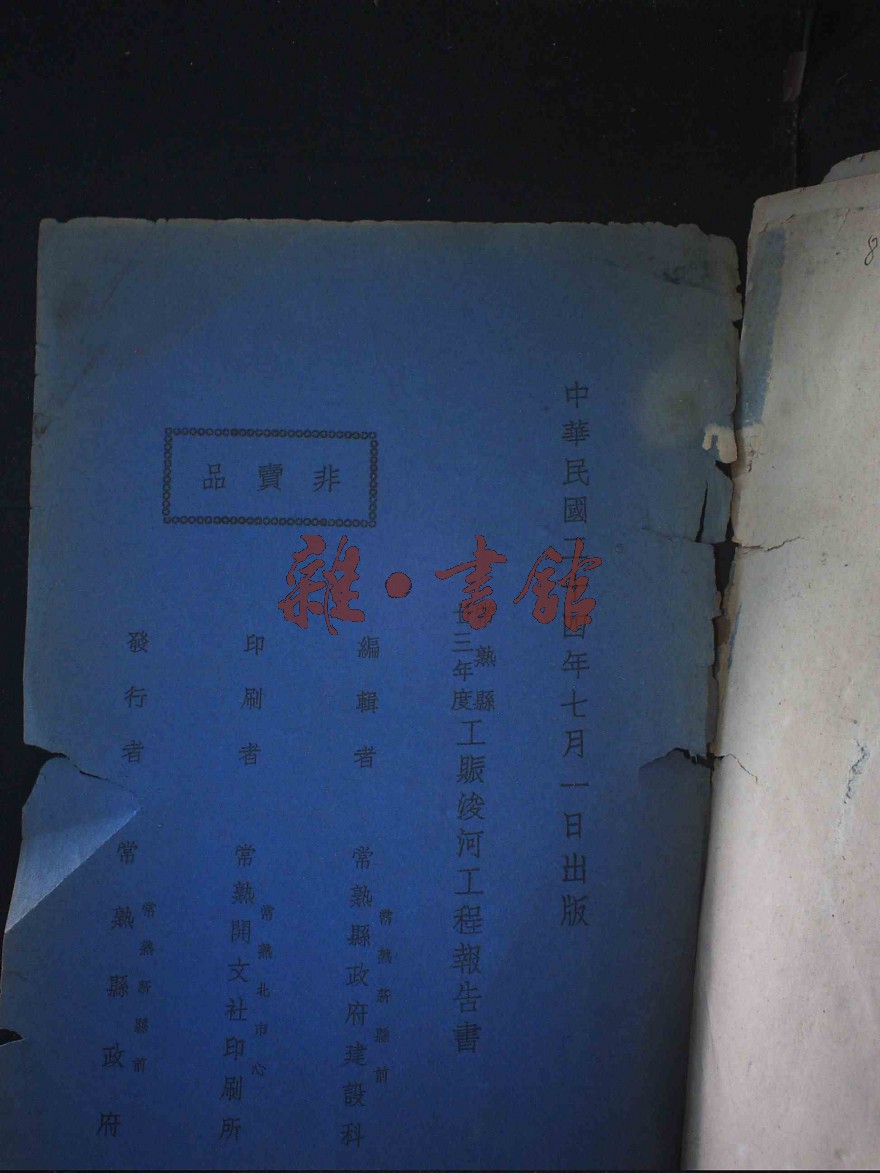 8
中華民國二十四年七月一日出版
熟縣
廿三年度
工賑浚河工程報告書
非賣品
編輯者
常熟新縣前
常熟縣政府建設科
印刷者
常熟北市心
常熟開文社印刷所
發行者
常熟新縣前
常熟縣政府
雜·書館